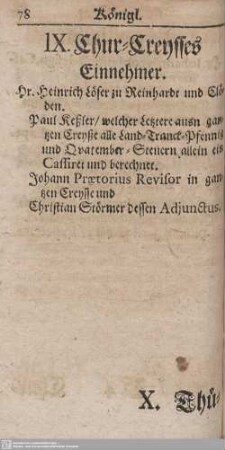 78 Königl.
IX. Chur-Creysses
Einnehmer.
Hr. Heinrich Löser zu Reinhardt und Clö-
den.
Paul Keßler/ welcher Letztere ausn gan-
tzen Creyße alle Land-Tranck-Pfennig
und Qvatember-Steuern allein ein
Cassiret und berechnet.
Johann Prætorius Revisor in gan-
tzen Creysse und
Christian Störmer dessen Adjunctus.
X. Thü-